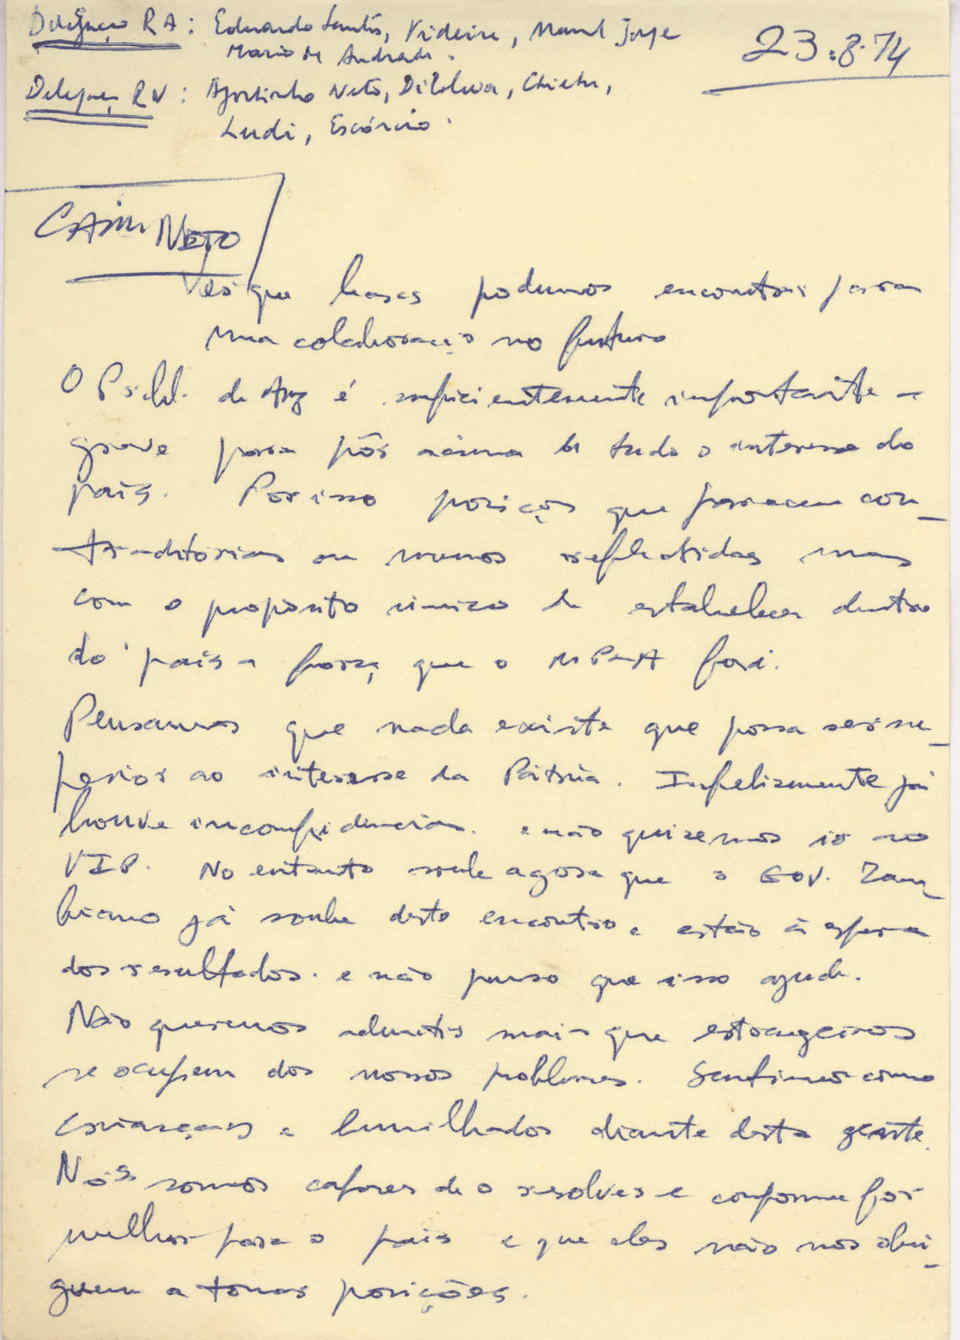 Delegação RA: Eduardo Santos, Videira, Manuel Jorge
Mario de Andrade.
23.8.74
Delegação RV: Agostinho Neto, Dilolwa, Chietu,
Ludi, Escórcio.
CAM NETO
Ver que bases podemos encontrar para
uma colaboração no futuro
O de Ang é suficientemente importante e
grave para pôr acima de tudo o interesse do
país. Por isso posições que parecem con-
traditórias ou menos reflectidas mas
com o propósito único de estabelecer dentro
do país a força que o MPLA foi.
Pensamos que nada existe que possa ser su-
perior ao interesse da Pátria. Infelizmente já
houve inconfidencias. e não quizemos ir ao
VIP. No entanto soube agora que o Gov. Zam-
biano já soube deste encontro e estão à espera
dos resultados. e não penso que isso ajude.
Não queremos admitir mais que estrangeiros
se ocupem dos nossos problemas. Sentimos como
crianças e humilhados diante desta gente.
Nós somos capazes de o resolver e conforme for
melhor para o país e que eles não nos obri-
guem a tomar posições.